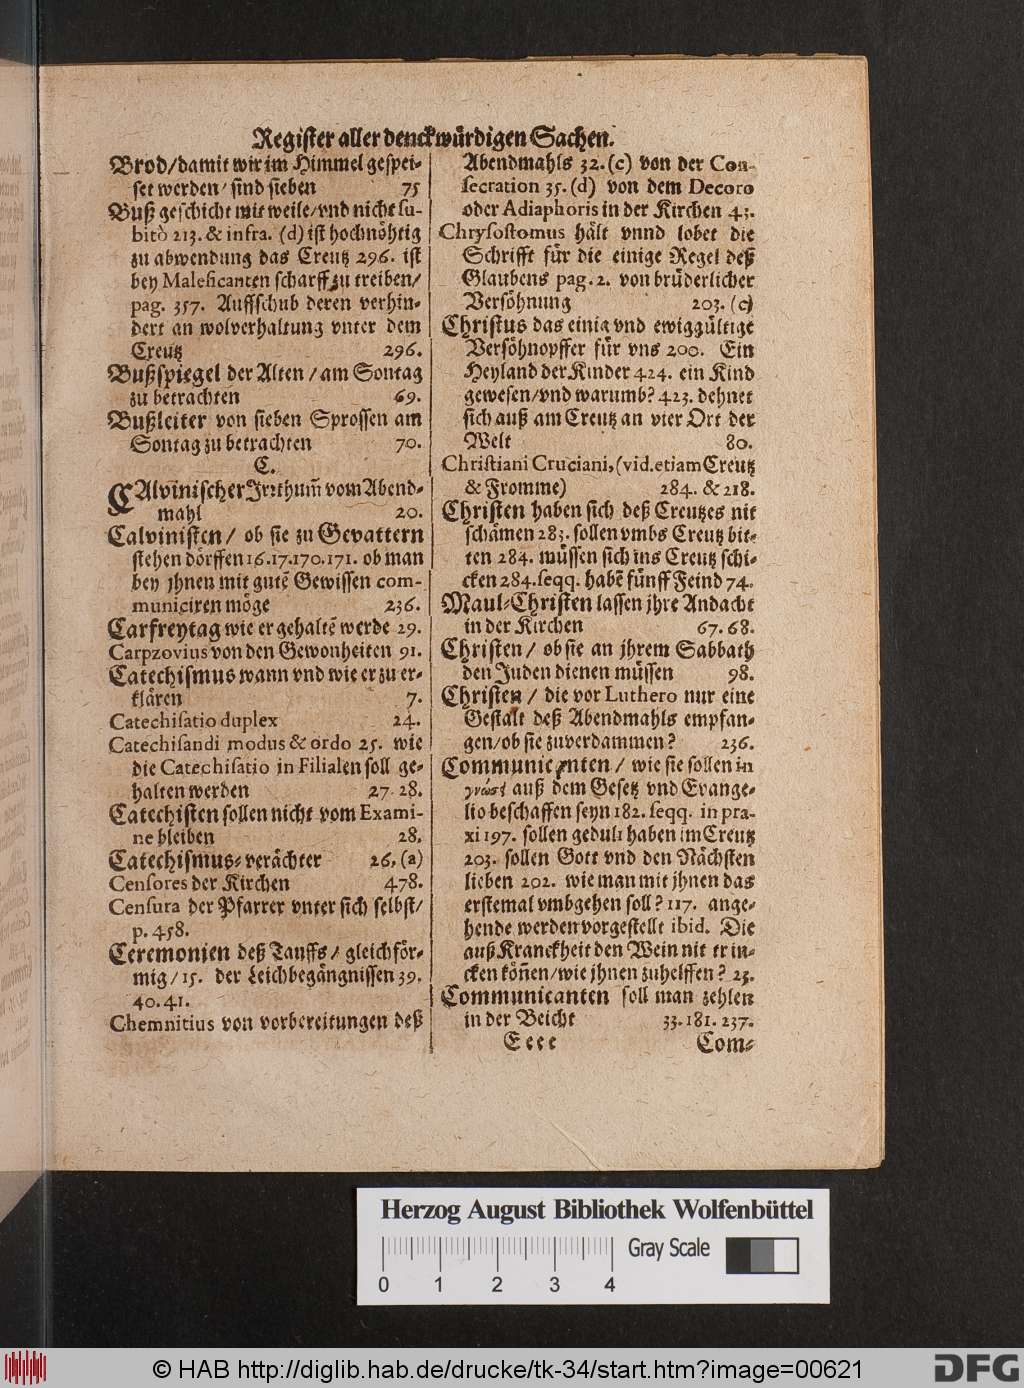 Register aller denckwürdigen Sachen.
Brod/damit wir im Himmel gespei-
set werden/ sind sieben 75
Buß geschicht mit weile/vnd nicht su-
bitò 213. & infra. (d) ist hochnöhtig
zu abwendung das Creutz 296. ist
bey Maleficanten scharff zu treiben/
pag. 357. Auffschub deren verhin-
dert an wolverhaltung vnter dem
Creutz 296.
Bußspiegel der Alten/am Sontag
zu betrachten 69.
Bußleiter von sieben Sprossen am
Sontag zu betrachten 70.
C.
CAlvinischer Irrthum̃ vom Abend-
mahl 20.
Calvinisten/ ob sie zu Gevattern
stehen dörffen 16.17.170.171. ob man
bey jhnen mit gutē Gewissen com-
municiren möge 236.
Carfreytag wie er gehaltē werde 29.
Carpzovius von den Gewonheiten 91.
Catechismus wann vnd wie er zu er-
klären 7.
Catechisatio duplex 24.
Catechisandi modus & ordo 25. wie
die Catechisatio in Filialen soll ge-
halten werden 27. 28.
Catechisten sollen nicht vom Exami-
ne bleiben 28.
Catechismus-verächter 26.(a)
Censores der Kirchen 478.
Censura der Pfarrer vnter sich selbst/
p. 458.
Ceremonien deß Tauffs/ gleichför-
mig/15. der Leichbegängnissen 39.
40. 41.
Chemnitius von vorbereitungen deß
Abendmahls 32.(c) von der Con-
secration 35.(d) von dem Decoro
oder Adiaphoris in der Kirchen 43.
Chrysostomus hält vnnd lobet die
Schrifft für die einige Regel deß
Glaubens pag. 2. von brüderlicher
Versöhnung 203. (c)
Christus das einig vnd ewiggültige
Versöhnopffer für vns 200. Ein
Heyland der Kinder 424. ein Kind
gewesen/vnd warumb? 423. dehnet
sich auß am Creutz an vier Ort der
Welt 80.
Christiani Cruciani, (vid. etiam Creutz
& Fromme) 284. & 218.
Christen haben sich deß Creutzes nit
schämen 283. sollen vmbs Creutz bit-
ten 284. müssen sich ins Creutz schi-
cken 284. seqq. habē fünff Feind 74.
Maul-Christen lassen jhre Andacht
in der Kirchen 67. 68.
Christen/ ob sie an jhrem Sabbath
den Juden dienen müssen 98.
Christen/ die vor Luthero nur eine
Gestalt deß Abendmahls empfan-
gen/ob sie zuverdammen? 236.
Communicanten/ wie sie sollen in
γνώσει auß dem Gesetz vnd Evange-
lio beschaffen seyn 182. seqq. in pra-
xi 197. sollen gedult haben im Creutz
203. sollen Gott vnd den Nächsten
lieben 202. wie man mit jhnen das
erstemal vmbgehen soll? 117. ange-
hende werden vorgestellt ibid. Die
auß Kranckheit den Wein nit trin-
cken köñen/wie jhnen zuhelffen? 23.
Communicanten soll man zehlen
in der Beicht 33. 181. 237.
Eeee Com-
Herzog August Bibliothek Wolfenbüttel
Gray Scale
0 1 2 3 4
© HAB http://diglib.hab.de/drucke/tk-34/start.htm?image=00621
DFG